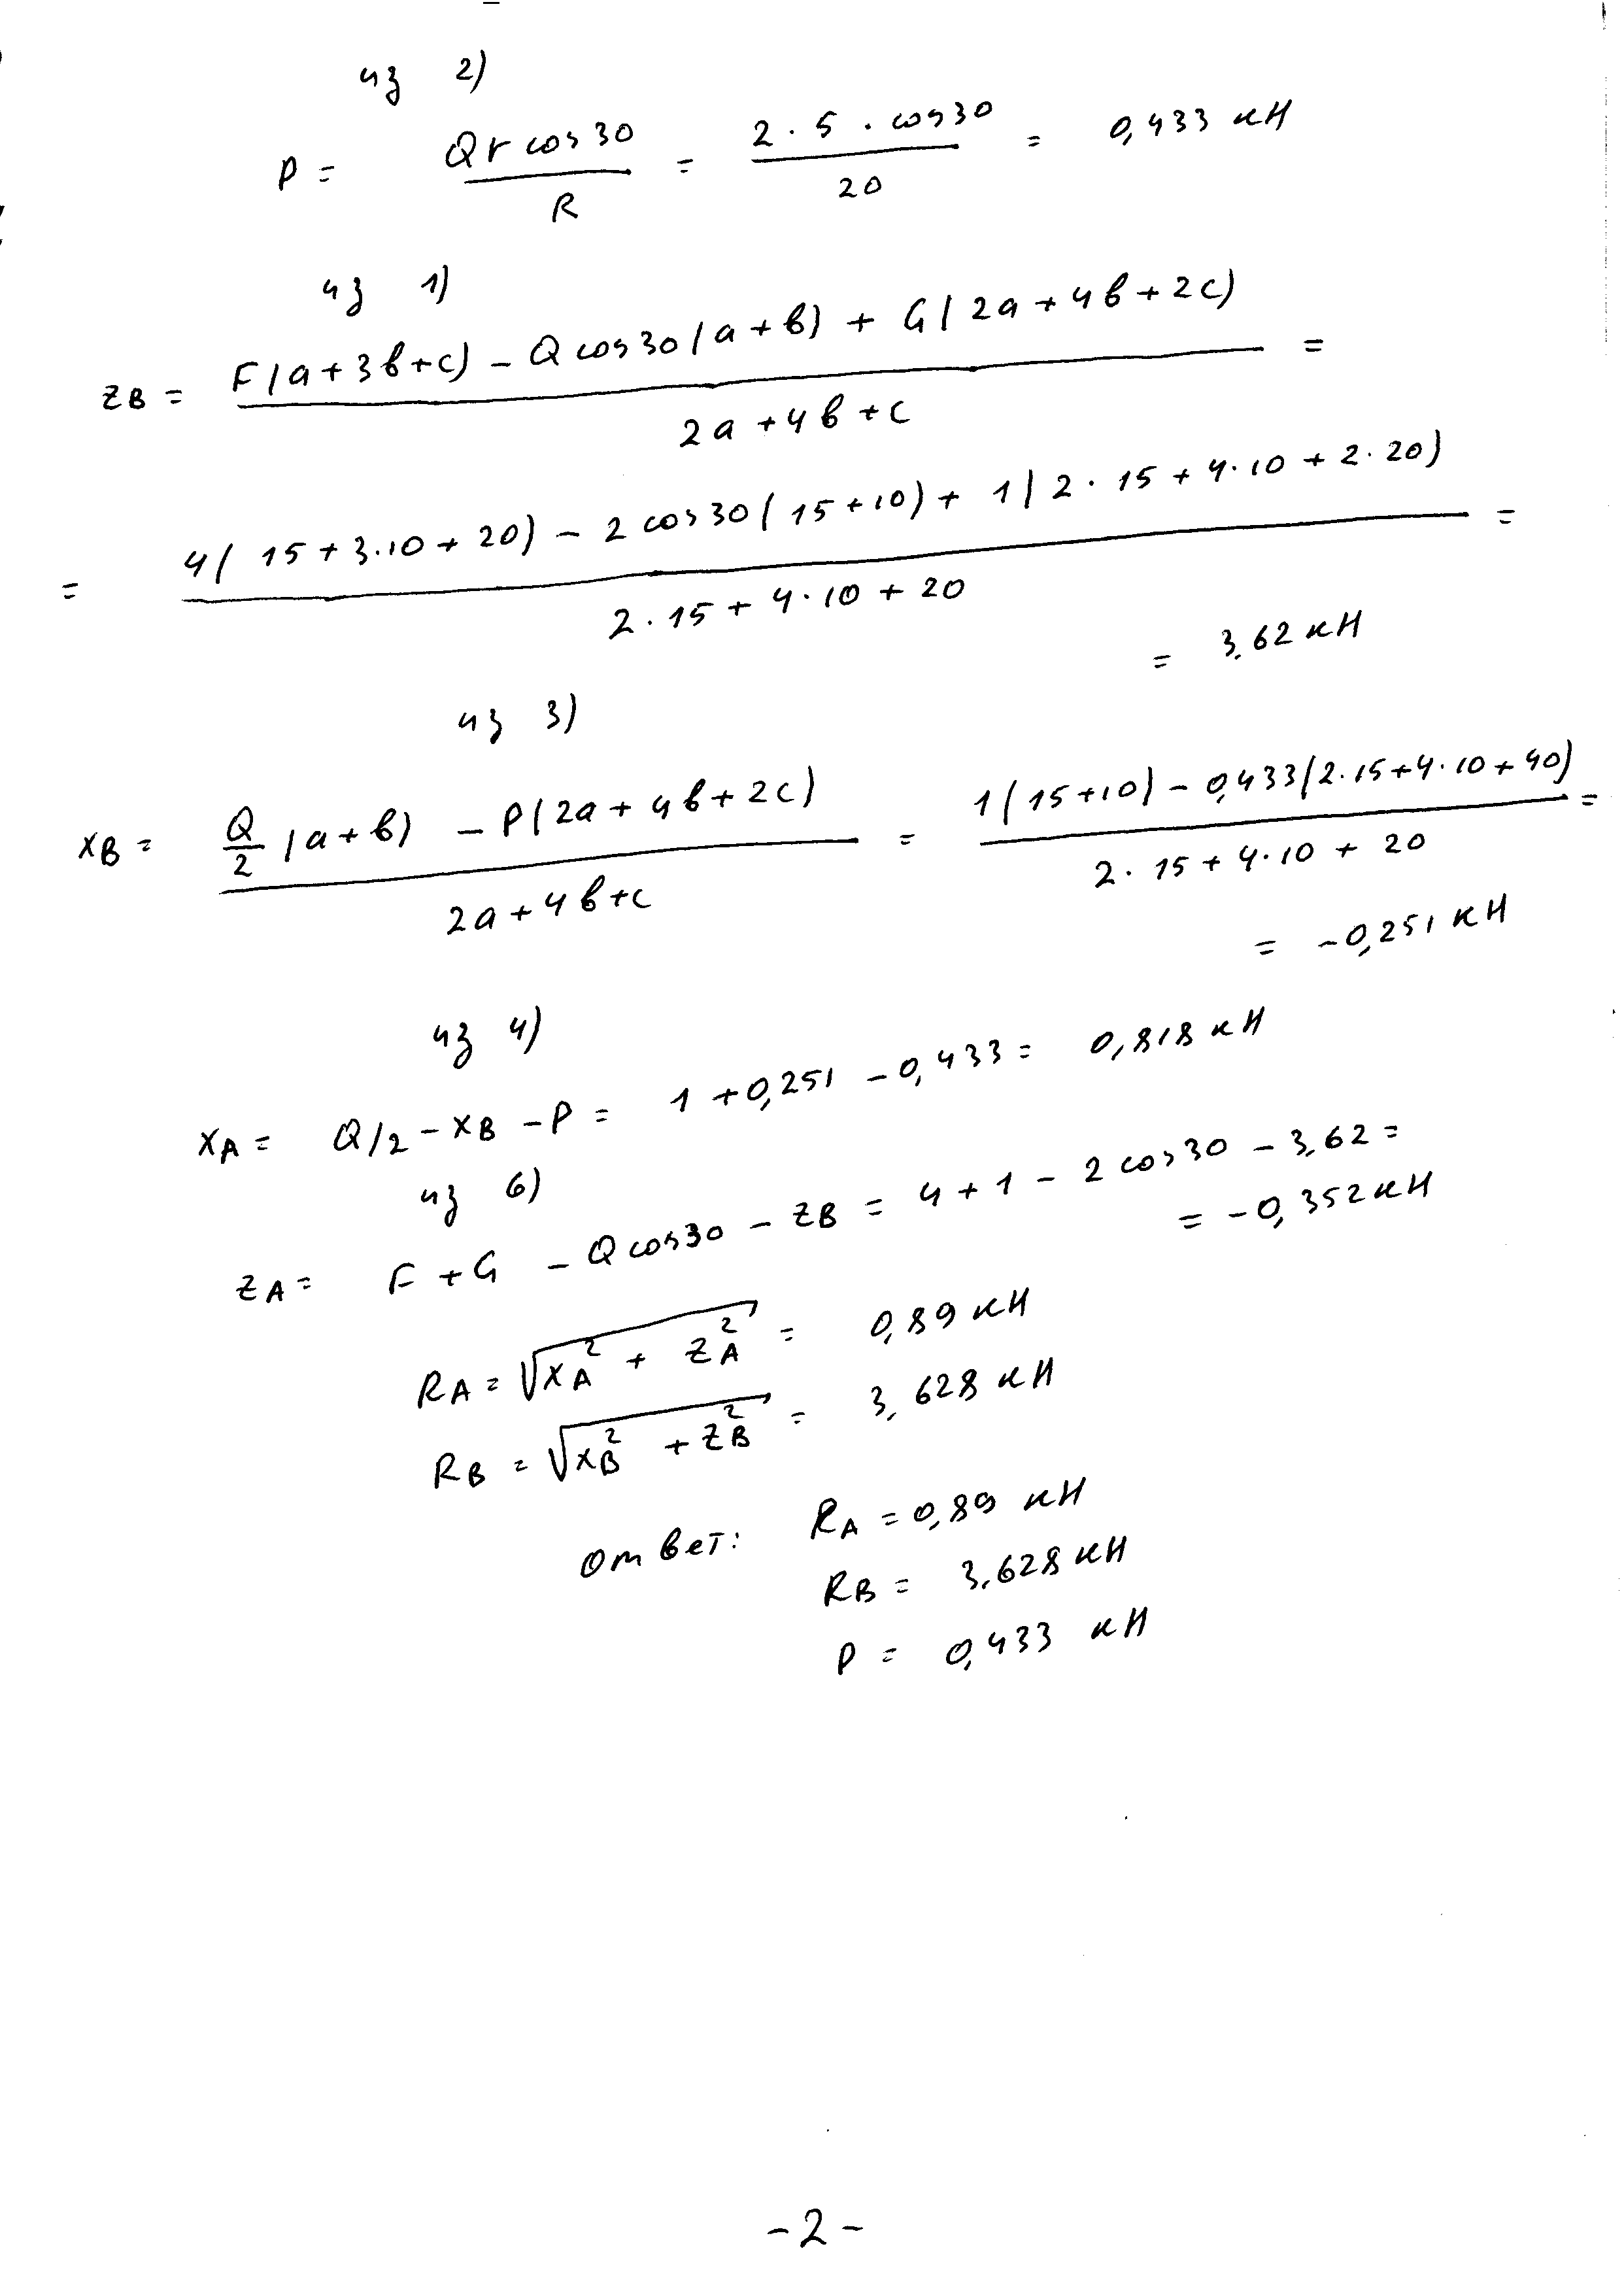 из 2)
P = Qr cos 30 / R = 2 · 5 · cos 30 / 20 = 0,433 кН
из 1)
ZB = F(a + 3в + c) - Q cos 30 (a + в) + G(2a + 4в + 2c) / 2a + 4в + c =
= 4(15 + 3·10 + 20) - 2 cos 30 (15 + 10) + 1(2·15 + 4·10 + 2·20) / 2·15 + 4·10 + 20 =
= 3,62 кН
из 3)
XB = Q/2 (a + в) - P(2a + 4в + 2c) / 2a + 4в + c = 1(15 + 10) - 0,433(2·15 + 4·10 + 40) / 2·15 + 4·10 + 20 =
= -0,251 кН
из 4)
XA = Q/2 - XB - P = 1 + 0,251 - 0,433 = 0,818 кН
из 6)
ZA = F + G - Q cos 30 - ZB = 4 + 1 - 2 cos 30 - 3,62 =
= -0,352 кН
RA = √(XA² + ZA²) = 0,89 кН
RB = √(XB² + ZB²) = 3,628 кН
ответ: RA = 0,89 кН
RB = 3,628 кН
P = 0,433 кН
-2-